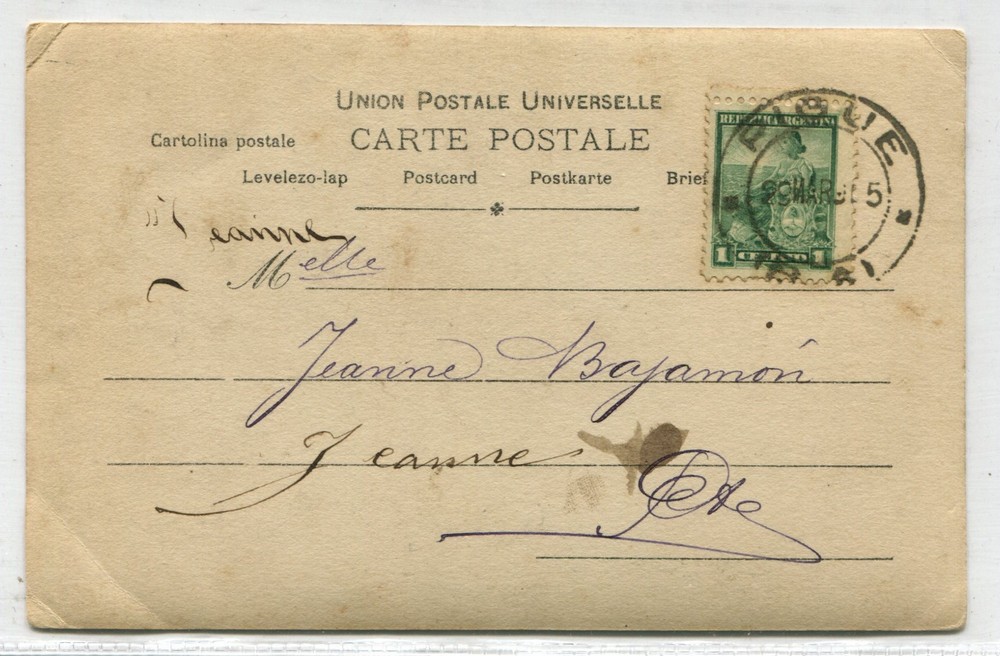 UNION POSTALE UNIVERSELLE
Cartolina postale
CARTE POSTALE
Levelezo-lap Postcard Postkarte Brief
REPUBLICA ARGENTINA
PIGUE
29 MAR 5
1 CENTAVO 1
Jeanne
Melle
Jeanne Bajamón
Jeanne